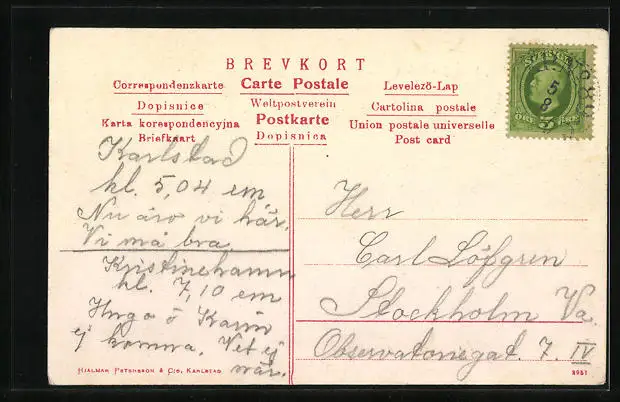 BREVKORT
Correspondenzkarte Carte Postale Levelező-Lap
Dopisnice Weltpostverein Cartolina postale
Karta korespondencyjna Postkarte Union postale universelle
Briefkaart Dopisnica Post card
Karlstad
kl. 5,04 em.
Nu äro vi här.
Vi må bra.
Kristinehamn
kl. 7,10 em
Hugo o Karin
ej komna. Vet ej
när.
Herr
Carl Löfgren
Stockholm Va.
Observatoriegat. 7. IV
HJALMAR PETERSSON & CO., KARLSTAD
3951
5
8
ÖRE 5 ÖRE